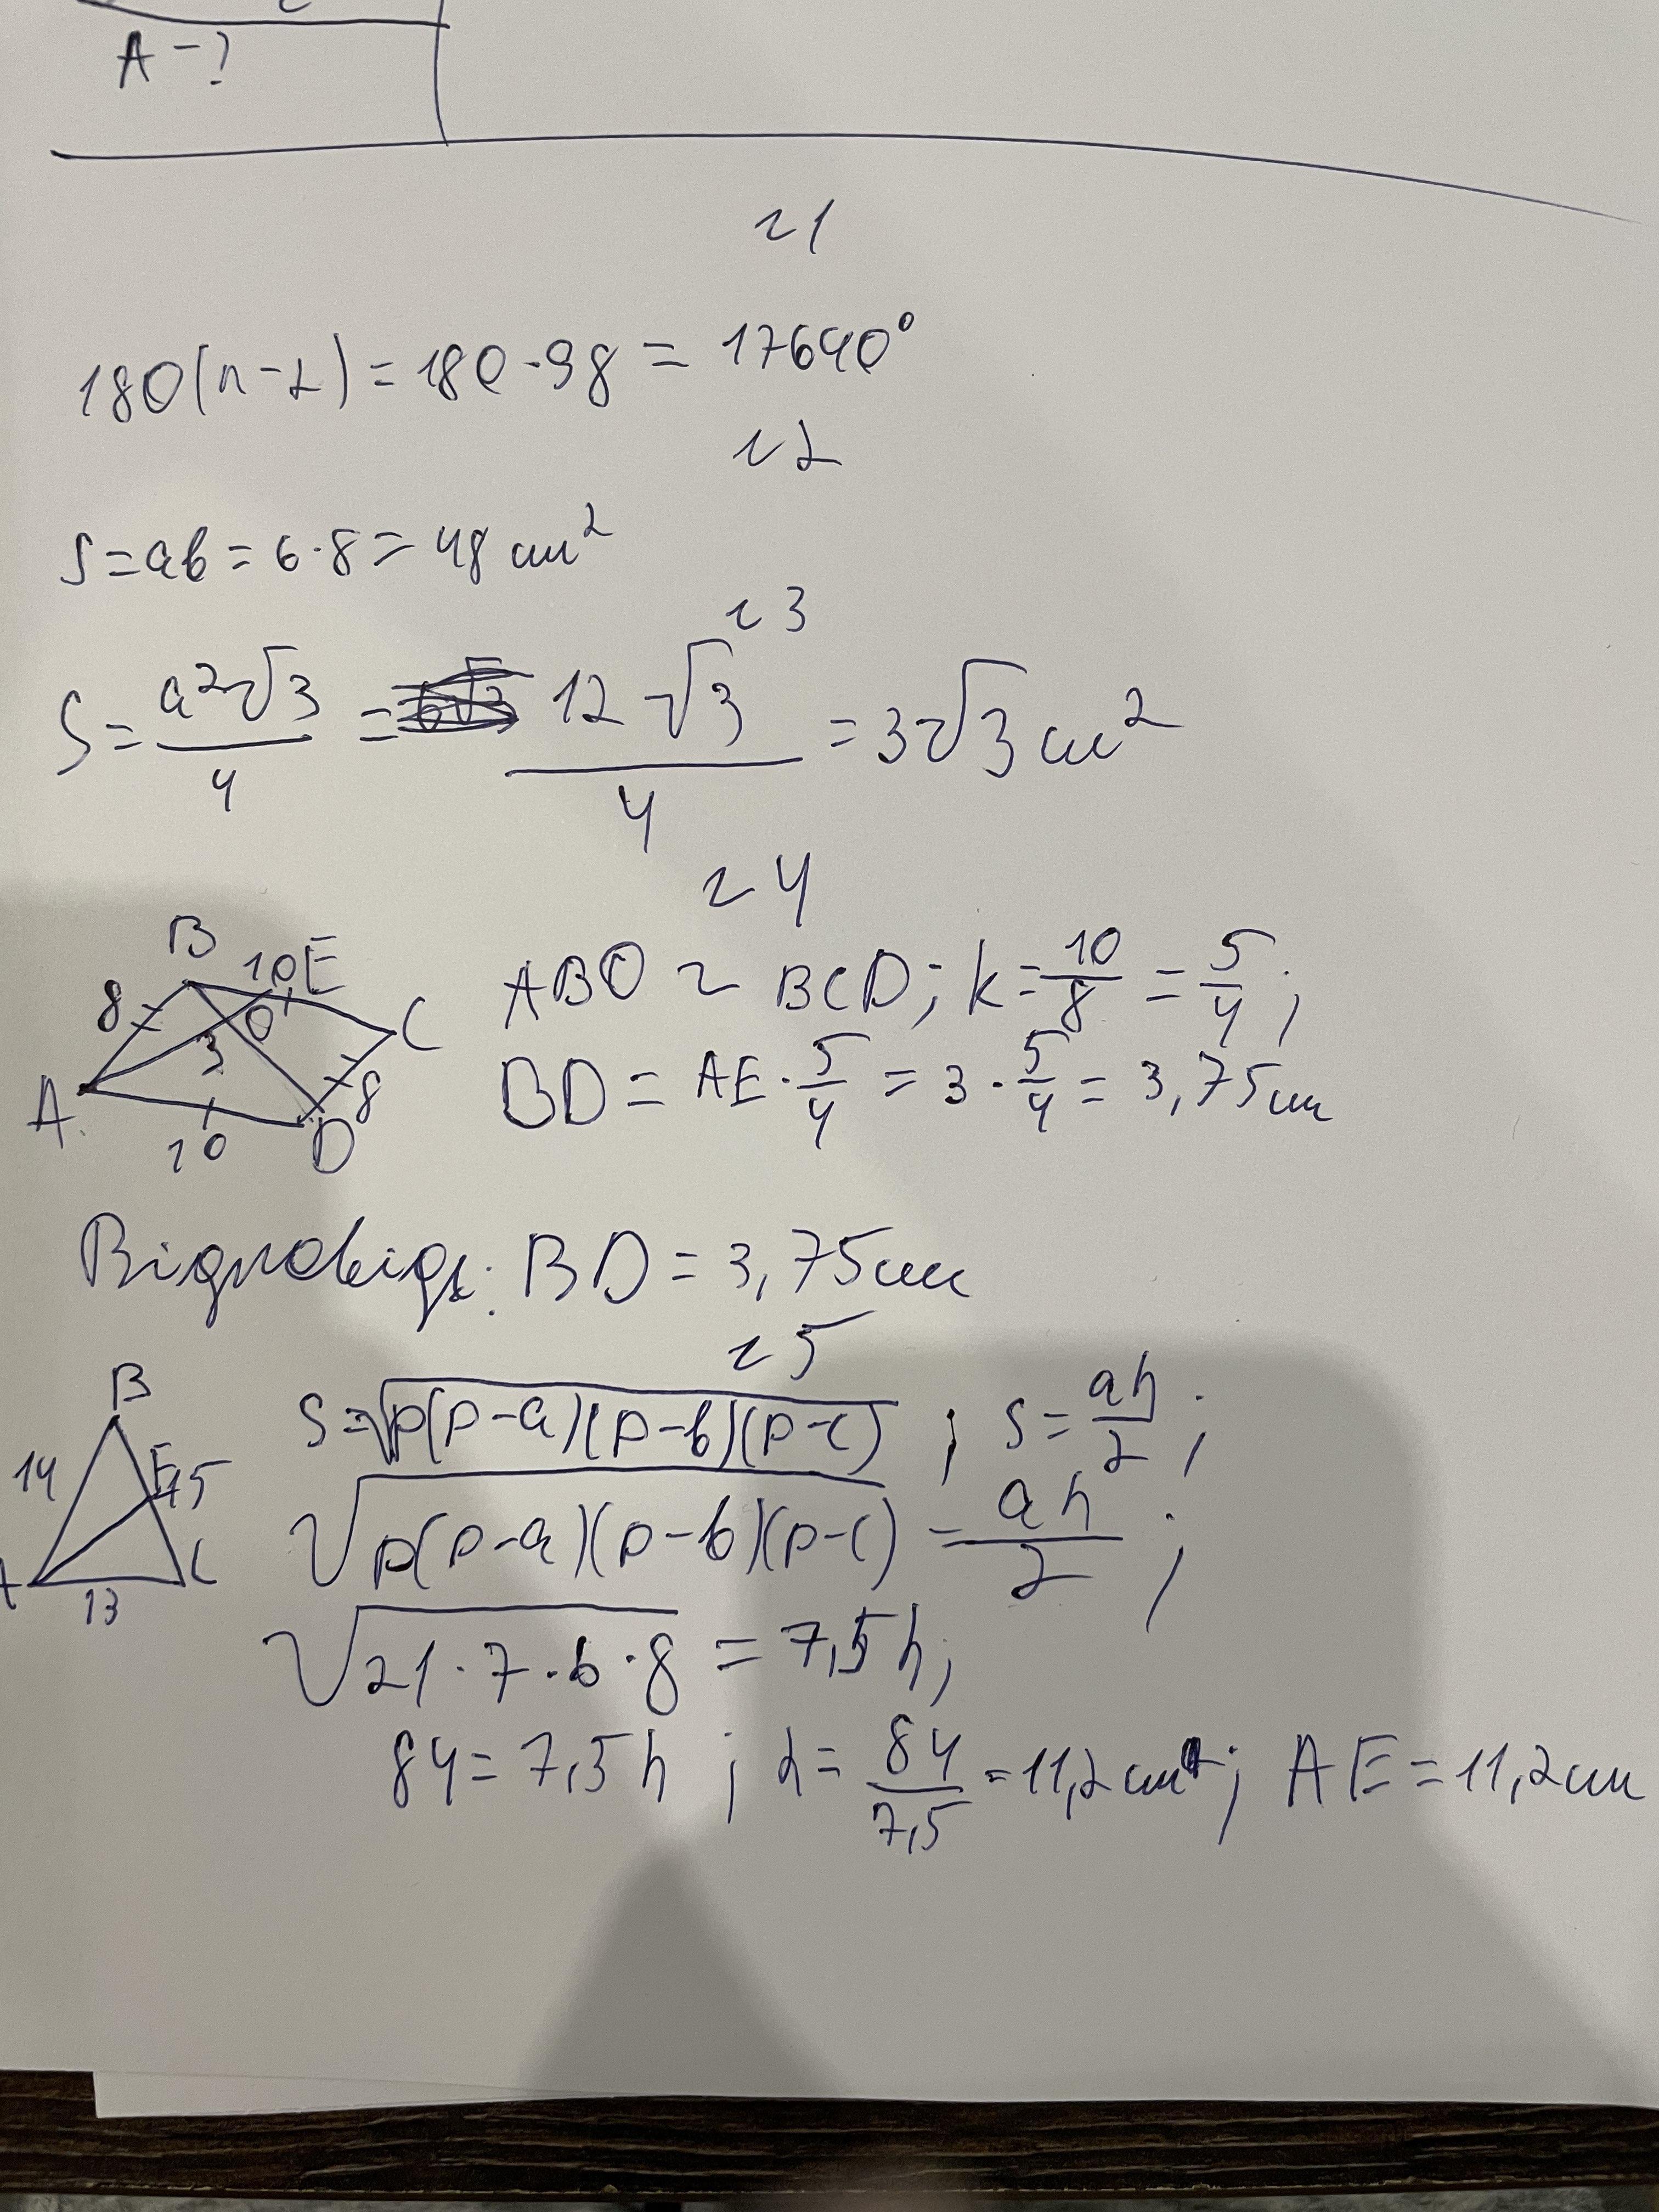 A - ?
№1
180(n-2) = 180·98 = 17640°
№2
S = ab = 6·8 = 48 см²
№3
S = a²√3/4 = 12√3/4 = 3√3 см²
№4
B 10 E
8 O C
3
A 8
10 D
ABO ~ BCD; k = 10/8 = 5/4;
BD = AE · 5/4 = 3 · 5/4 = 3,75 см
Відповідь: BD = 3,75 см
№5
B
14 E 15
C
13
S = √p(p-a)(p-b)(p-c) ; S = ah/2 ;
√p(p-a)(p-b)(p-c) = ah/2 ;
√21·7·6·8 = 7,5h;
84 = 7,5h ; h = 84/7,5 = 11,2 см ; AE = 11,2 см